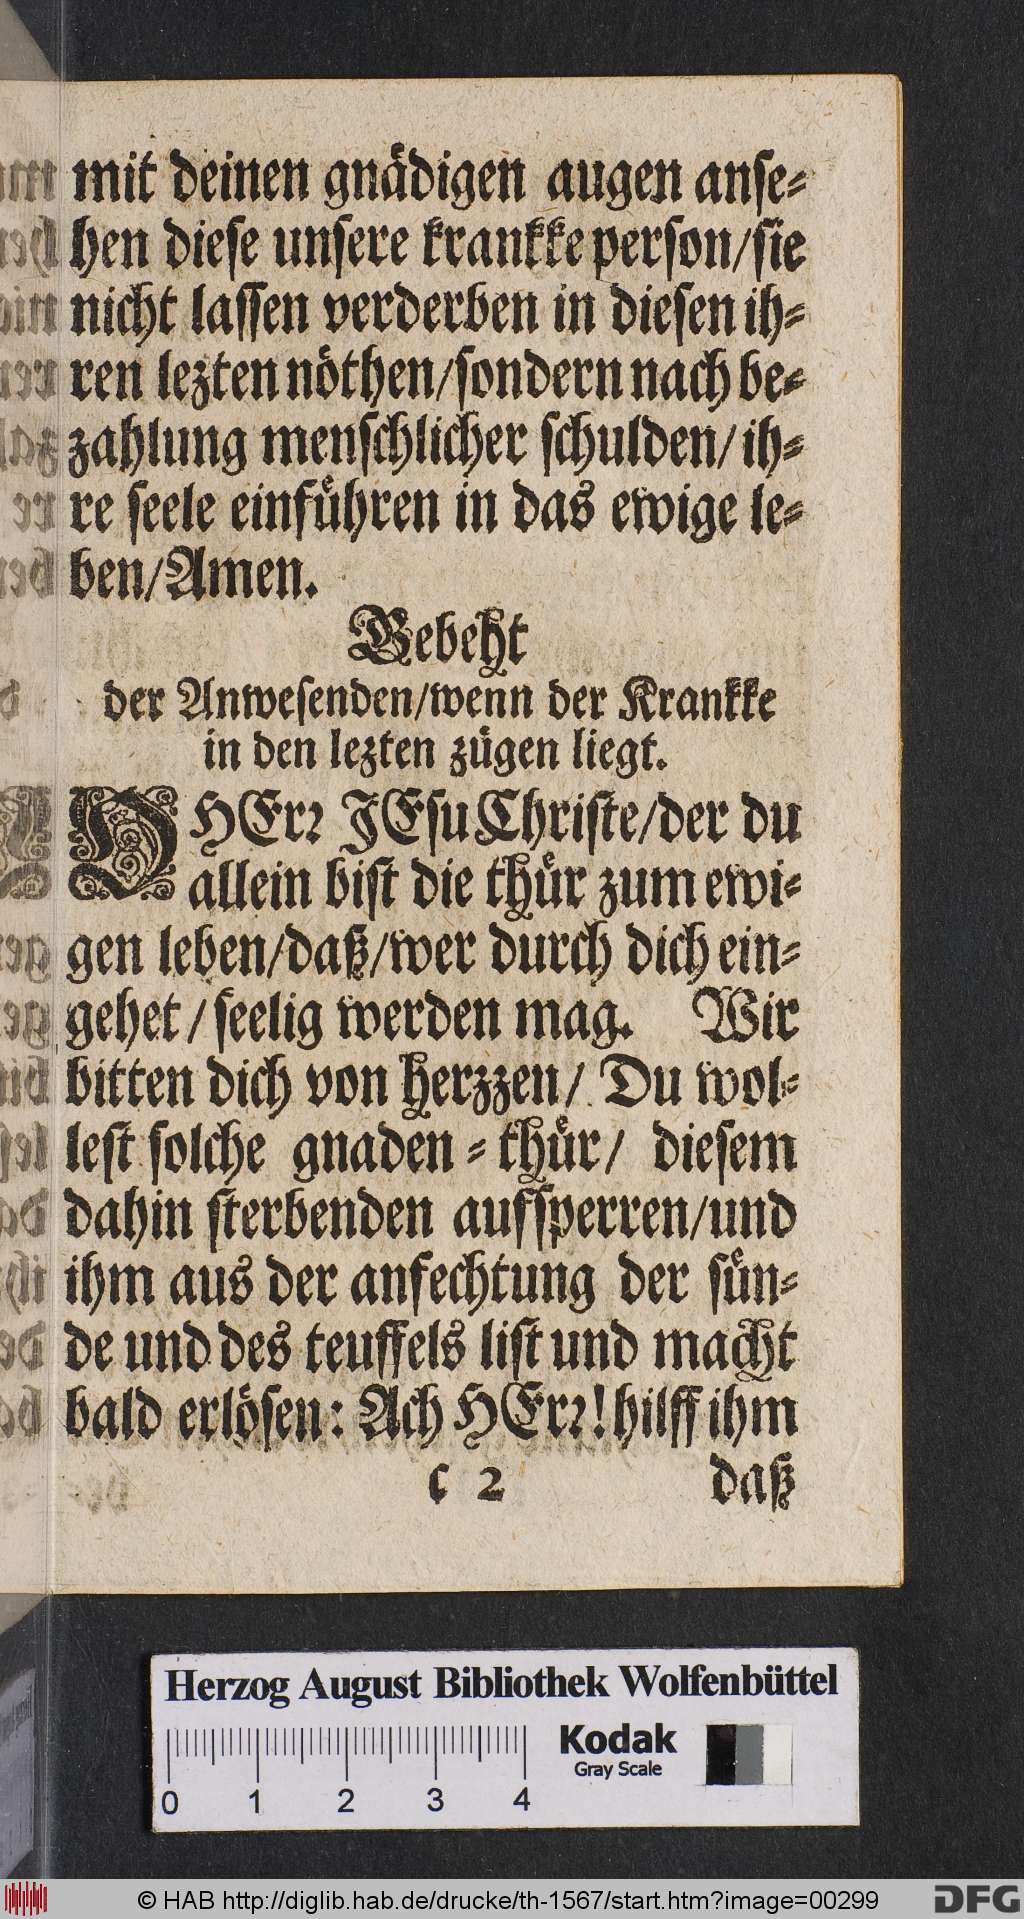 mit deinen gnådigen augen anse⸗
hen diese unsere krankke person/sie
nicht lassen verderben in diesen ih⸗
ren lezten nöthen/sondern nach be⸗
zahlung menschlicher schulden/ ih⸗
re seele einfuͤhren in das ewige le⸗
ben/Amen.
Gebeht
der Anwesenden/wenn der Krankke
in den lezten zügen liegt.
O HErꝛ JEsu Christe/der du
allein bist die thuͤr zum ewi⸗
gen leben/daß/wer durch dich ein⸗
gehet/seelig werden mag. Wir
bitten dich von herzzen/ Du wol⸗
lest solche gnaden⸗thuͤr/ diesem
dahin sterbenden aufsperren/und
ihm aus der anfechtung der suͤn⸗
de und des teuffels list und macht
bald erlösen: Ach HErꝛ! hilff ihm
c 2 daß
Herzog August Bibliothek Wolfenbüttel
Kodak
Gray Scale
0 1 2 3 4
© HAB http://diglib.hab.de/drucke/th-1567/start.htm?image=00299
DFG